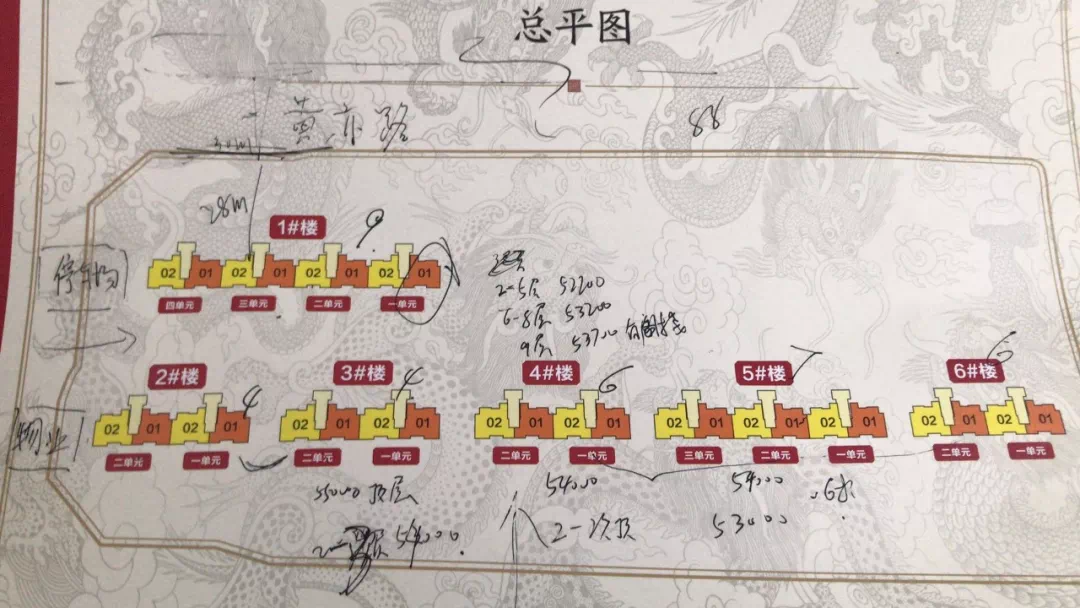 总平图
黄亦路
88
30m
28m
1#楼 9
停车场
02 01 02 01 02 01 02 01
四单元 三单元 二单元 一单元
2-5层 52700
6-8层 53200
9层 53700
2#楼 3#楼 4 4#楼 6 5#楼 7 6#楼 6
4
物业
02 01 02 01 02 01 02 01 02 01 02 01 02 01 02 01 02 01 02 01 02 01
二单元 一单元 二单元 一单元 二单元 一单元 三单元 二单元 一单元 二单元 一单元
55000 顶层 54000 54000
54000 2-次顶 53000